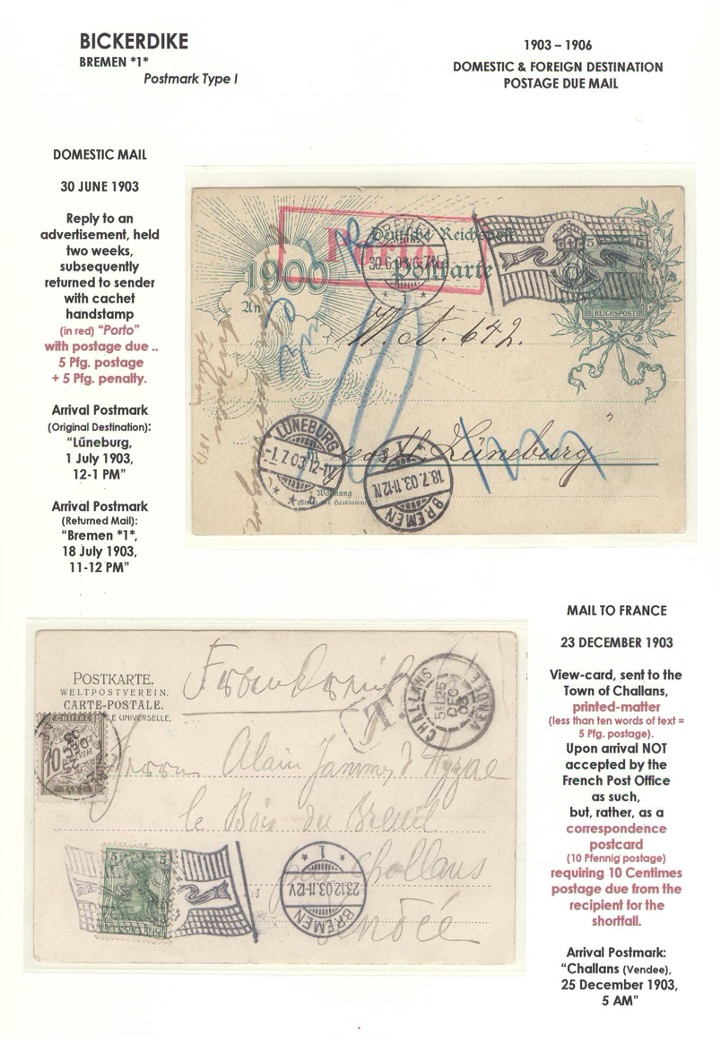 BICKERDIKE
BREMEN *1*
Postmark Type I
1903 – 1906
DOMESTIC & FOREIGN DESTINATION
POSTAGE DUE MAIL
DOMESTIC MAIL
30 JUNE 1903
Reply to an
advertisement, held
two weeks,
subsequently
returned to sender
with cachet
handstamp
(in red) “Porto”
with postage due ..
5 Pfg. postage
+ 5 Pfg. penalty.
Arrival Postmark
(Original Destination):
“Lűneburg,
1 July 1903,
12-1 PM”
Arrival Postmark
(Returned Mail):
“Bremen *1*,
18 July 1903,
11-12 PM”
Porto
Deutsche Reichspost
Postkarte
1900
An
5
REICHSPOST
W. A. 642.
10
postl. Lüneburg
LÜNEBURG
-1.7.03.12-1N.
Wohnung
1
18.7.03.11-12N
BREMEN
MAIL TO FRANCE
23 DECEMBER 1903
View-card, sent to the
Town of Challans,
printed-matter
(less than ten words of text =
5 Pfg. postage).
Upon arrival NOT
accepted by the
French Post Office
as such,
but, rather, as a
correspondence
postcard
(10 Pfennig postage)
requiring 10 Centimes
postage due from the
recipient for the
shortfall.
Arrival Postmark:
“Challans (Vendee),
25 December 1903,
5 AM”
POSTKARTE.
WELTPOSTVEREIN.
CARTE-POSTALE.
E UNIVERSELLE.
Frankreich
T.
CHALLANS
5E 25
DEC
03
VENDÉE
CHIFFRE
10
Herrn Alain
le Bois du Breuil
Challans
Vendée
5
1
23.12.03.11-12V
BREMEN